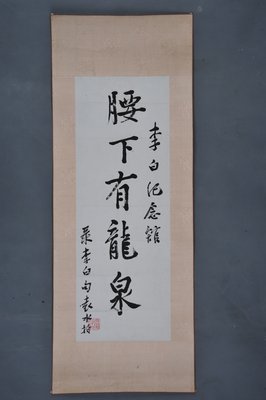 李白纪念館
腰下有龍泉
李白句袁水拍